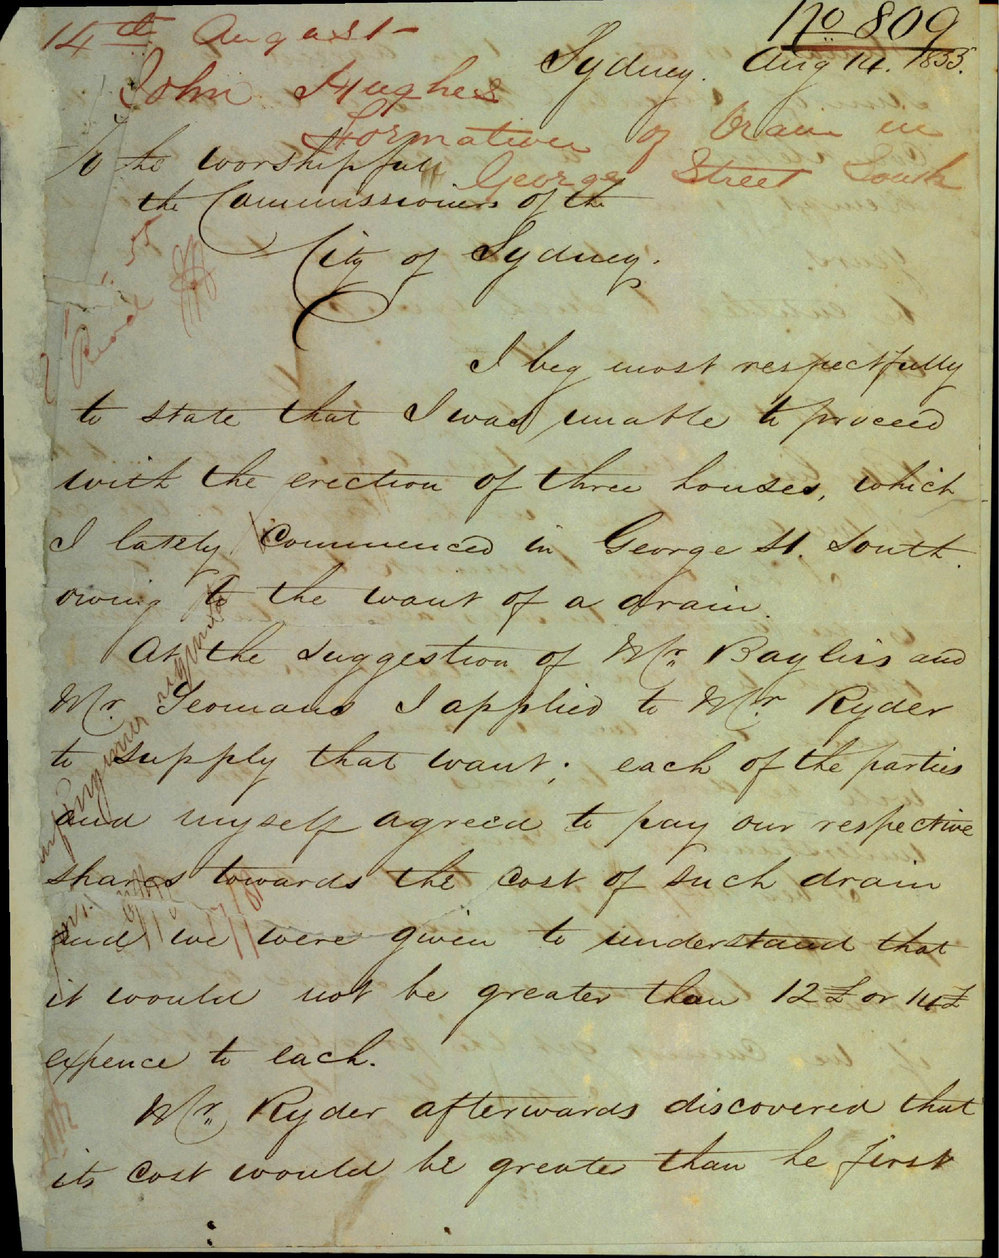 No 809
14th August
Sydney. Aug 14. 1855.
John Hughes
Formation of Drain in
George Street South
To the worshipful
the Commissioners of the
City of Sydney.
I beg most respectfully
to state that I was unable to proceed
with the erection of three houses, which
I lately commenced in George St. South.
owing to the want of a drain.
At the suggestion of Mr. Bayliss and
Mr. Yeomans I applied to Mr. Ryder
to supply that want; each of the parties
and myself agreed to pay our respective
shares towards the cost of such drain
and we were given to understand that
it would not be greater than 12£ or 14£
expence to each.
Mr. Ryder afterwards discovered that
its cost would be greater than he first